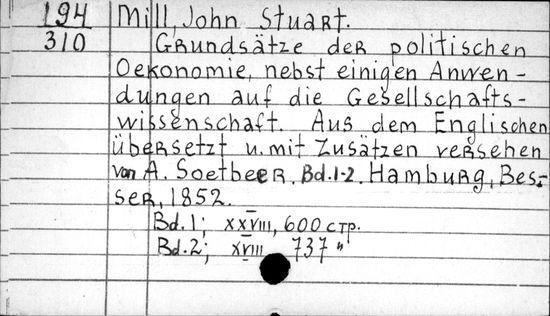 194 Mill, John Stuart.
310 Grundsätze der politischen
Oekonomie, nebst einigen Anwen-
dungen auf die Gesellschafts-
wissenschaft. Aus dem Englischen
übersetzt u. mit Zusätzen versehen
von A. Soetbeer. Bd. 1-2. Hamburg, Bes-
ser, 1852.
Bd. 1; XXVIII, 600 стр.
Bd. 2; XVIII 737 "